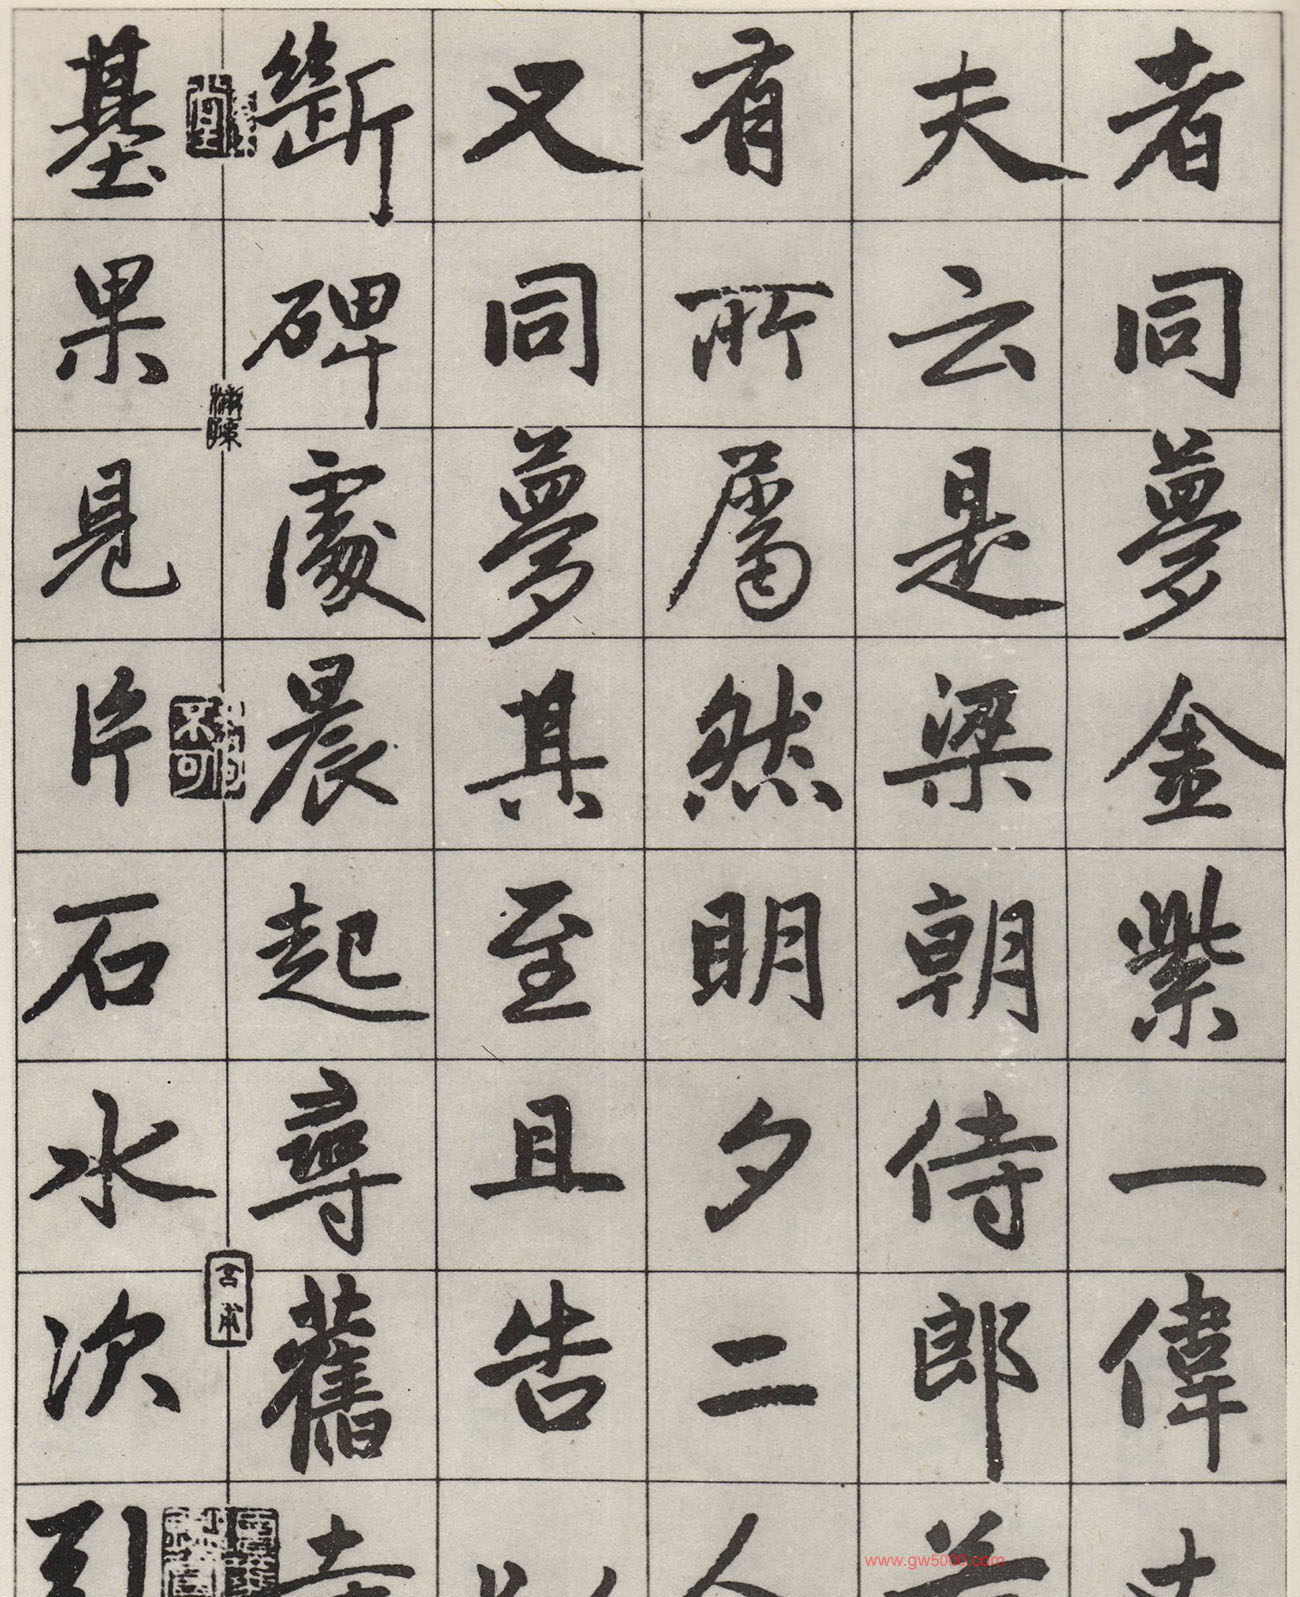 者同夢金紫一偉丈
夫云是梁朝侍郎蕭
有所属然明夕二人
又同夢其至且告以
斷碑處晨起尋舊寺
基果見片石水次引
不可
www.gw5000.com